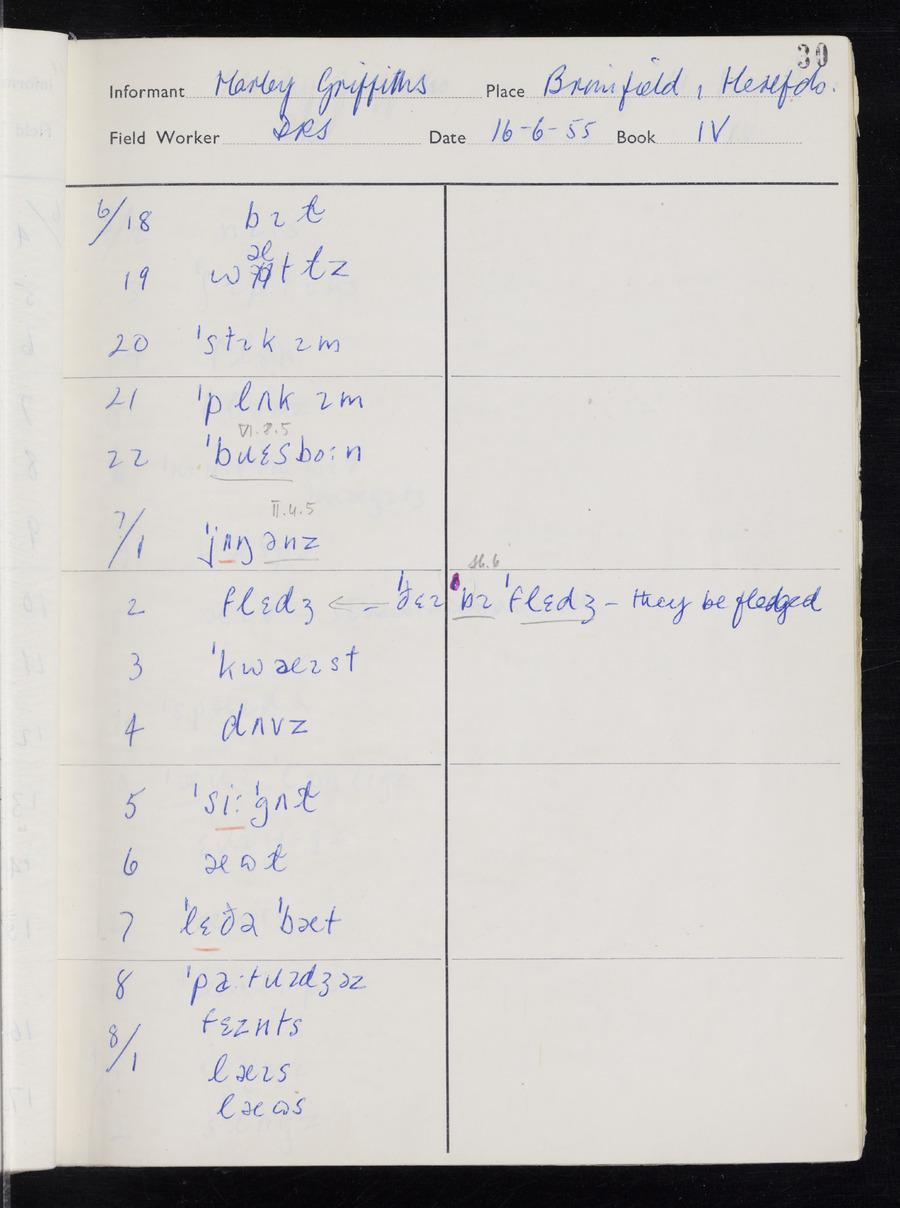 30
Informant Harley Griffiths Place Brimfield, Herefds.
Field Worker DRS Date 16-6-55 Book IV
6/18 bɪɫ
19 wæɫtɫz
20 ˈstɪkɪm
21 ˈplʌkɪm
VI.8.5
22 ˈbuɛsboːn
II.4.5
7/1 ˈjʌŋənz
St.6
2 flɛdʒ ← ˈðɛɪ ˈbɪ ˈflɛdʒ – they be fledged
3 ˈkwæɪst
4 dʌvz
5 ˈsiːˈgʌɫ
6 æωɫ
7 ˈlɛðəˈbæt
8 ˈpaːtɹɪdʒəz
8/1 fɛɪnts
læɪs
læωs